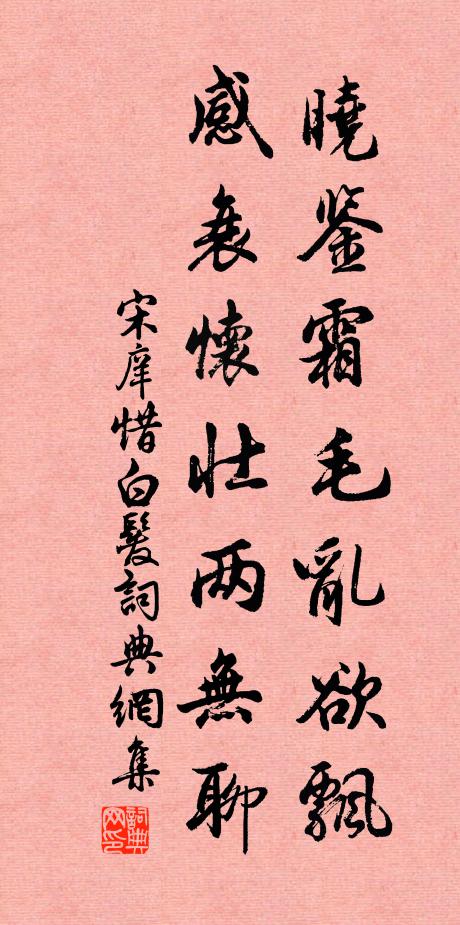 曉鉴霜毛亂欲飄
感衰懷壯两無聊
宋庠惜白髮詞典網集
詞典网印